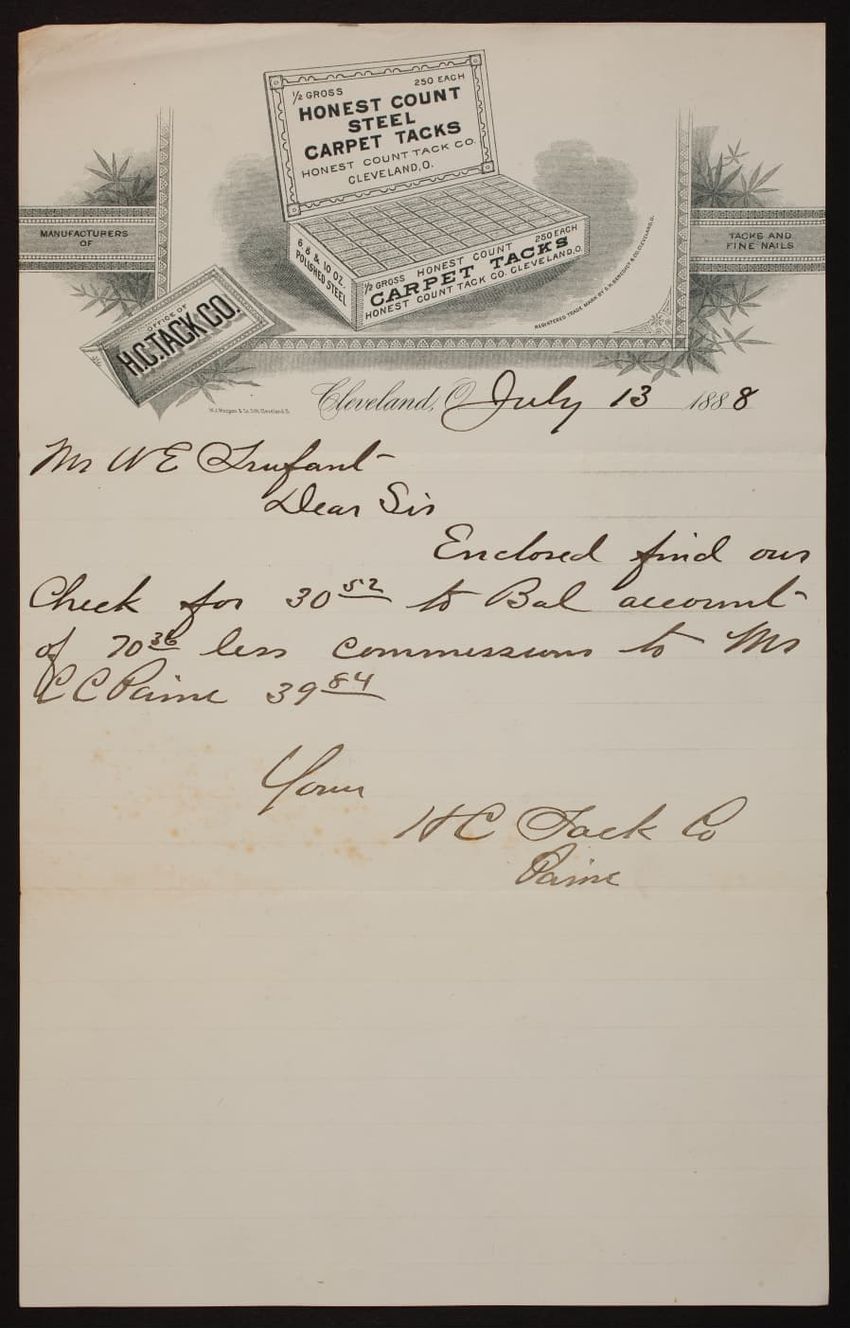 ½ GROSS 250 EACH
HONEST COUNT
STEEL
CARPET TACKS
HONEST COUNT TACK CO.
CLEVELAND, O.
6, 8 & 10 OZ.
POLISHED STEEL
½ GROSS HONEST COUNT 250 EACH
CARPET TACKS
HONEST COUNT TACK CO. CLEVELAND, O.
MANUFACTURERS
OF
TACKS AND
FINE NAILS
OFFICE OF
H.C. TACK CO.
REGISTERED TRADE MARK BY & CO. CLEVELAND, O.
W.J. Morgan & Co. Lith. Cleveland, O.
Cleveland, O. July 13 1888
Mr W E Trufant
Dear Sir
Enclosed find our
Check for 30 52 to Bal account
of 70 36 less commissions to Mr
C C Paine 39 84
Yours
H C Tack Co
Paine